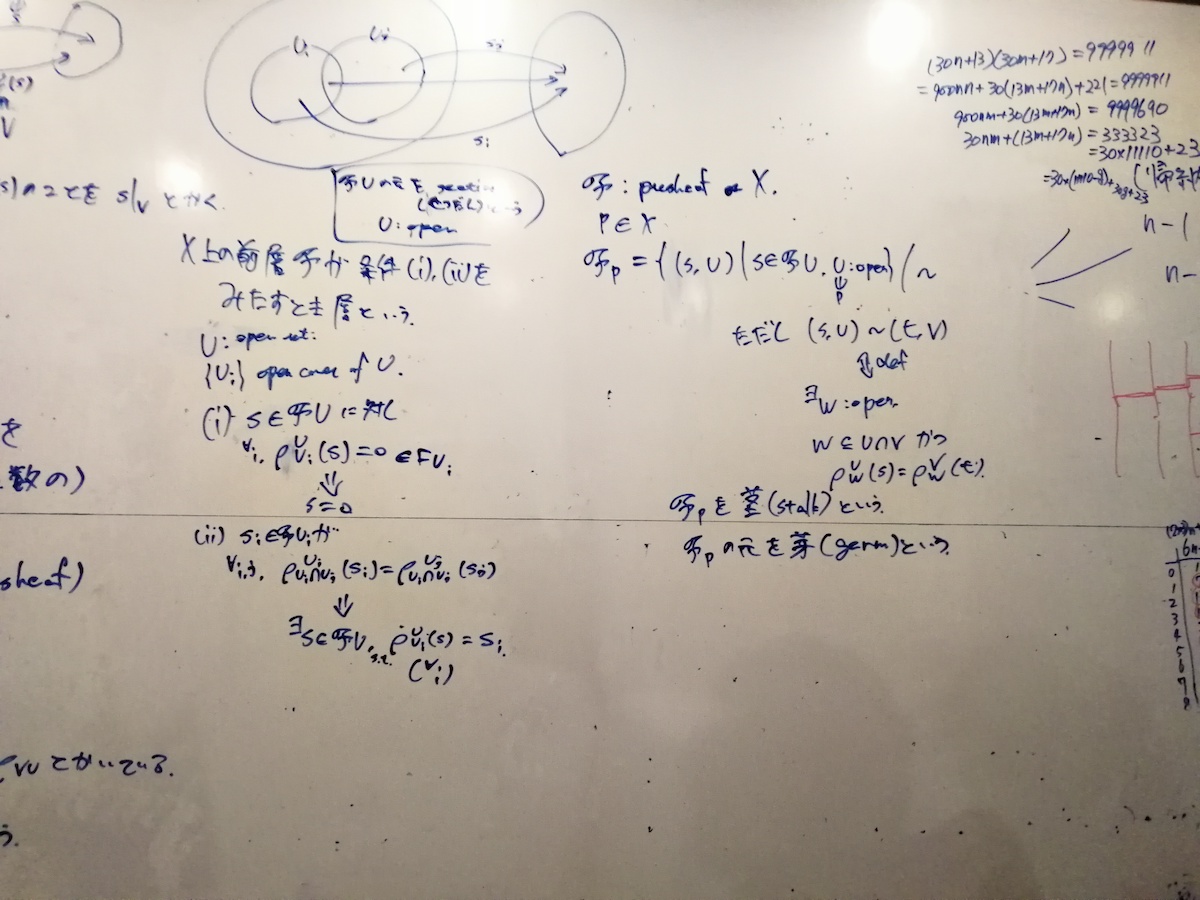 (s)
V
(s)のことを s|_V とかく.
を
数の)
sheaf)
VU とかいている.
う.
U_i
U_j
s_j
s_i
𝓕Uの元を section
という
U: open
X上の前層𝓕が条件(i),(ii)を
みたすとき層という.
U: open set.
{U_i} open cover of U.
(i) s∈𝓕U に対し
∀i, ρ^U_{U_i}(s)=0 ∈FU_i
⇓
s=0
(ii) s_i∈𝓕U_iが
∀i,j, ρ^{U_i}_{U_i∩U_j}(s_i)=ρ^{U_j}_{U_i∩U_j}(s_j)
⇓
∃s∈𝓕U, s.t. ρ^U_{U_i}(s)=s_i.
(∀i)
𝓕: presheaf on X.
P∈X
𝓕_p={(s,U)|s∈𝓕U, U:open}/~
p
ただし (s,U)~(t,V)
⇕def
∃W:open
W⊆U∩V かつ
ρ^U_W(s)=ρ^V_W(t).
𝓕_pを茎(stalk)という.
𝓕_pの元を芽(germ)という.
(30n+13)(30m+17)=9999911
=900nm+30(13m+17n)+221=9999911
900nm+30(13m+17n)=9999690
30nm+(13m+17n)=333323
=30×11110+23
n-1
n-
0
1
2
3
4
5
6
7
8